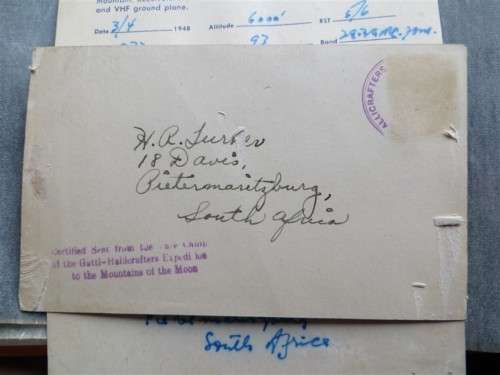 and VHF ground plane.
Date 3/4 1948 Altitude 6000' RST 5/6
93 Band
ALLICRAFTERS
H. A.
18 Davis,
Pietermaritzburg,
South Africa
ertified Sent from the Camp
f the Gatti-Hallicrafters Expedi
to the Mountains of the Moon
South Africa